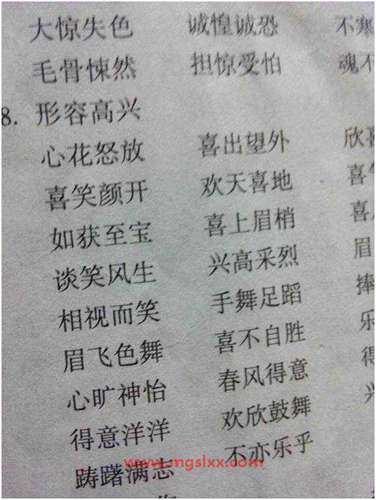 大惊失色 诚惶诚恐 不寒
毛骨悚然 担惊受怕 魂不
8. 形容高兴
心花怒放 喜出望外 欣
喜笑颜开 欢天喜地 喜
如获至宝 喜上眉梢 喜
谈笑风生 兴高采烈 眉
相视而笑 手舞足蹈 捧
眉飞色舞 喜不自胜 乐
心旷神怡 春风得意 得
得意洋洋 欢欣鼓舞
踌躇满志 不亦乐乎
www.mgslxx.com